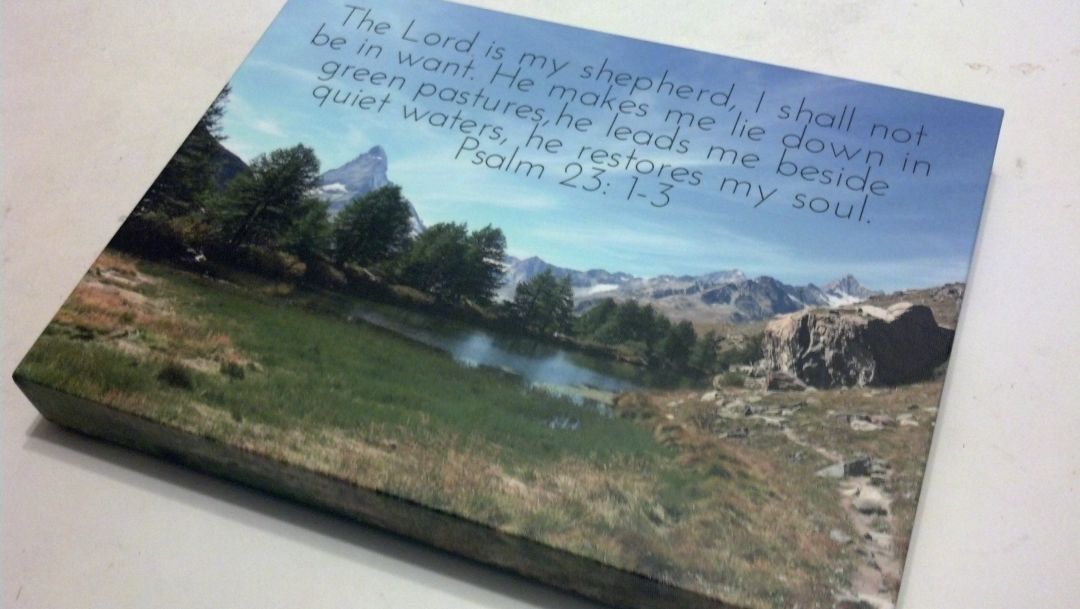 The Lord is my shepherd, I shall not
be in want. He makes me lie down in
green pastures,he leads me beside
quiet waters, he restores my soul.
Psalm 23: 1-3